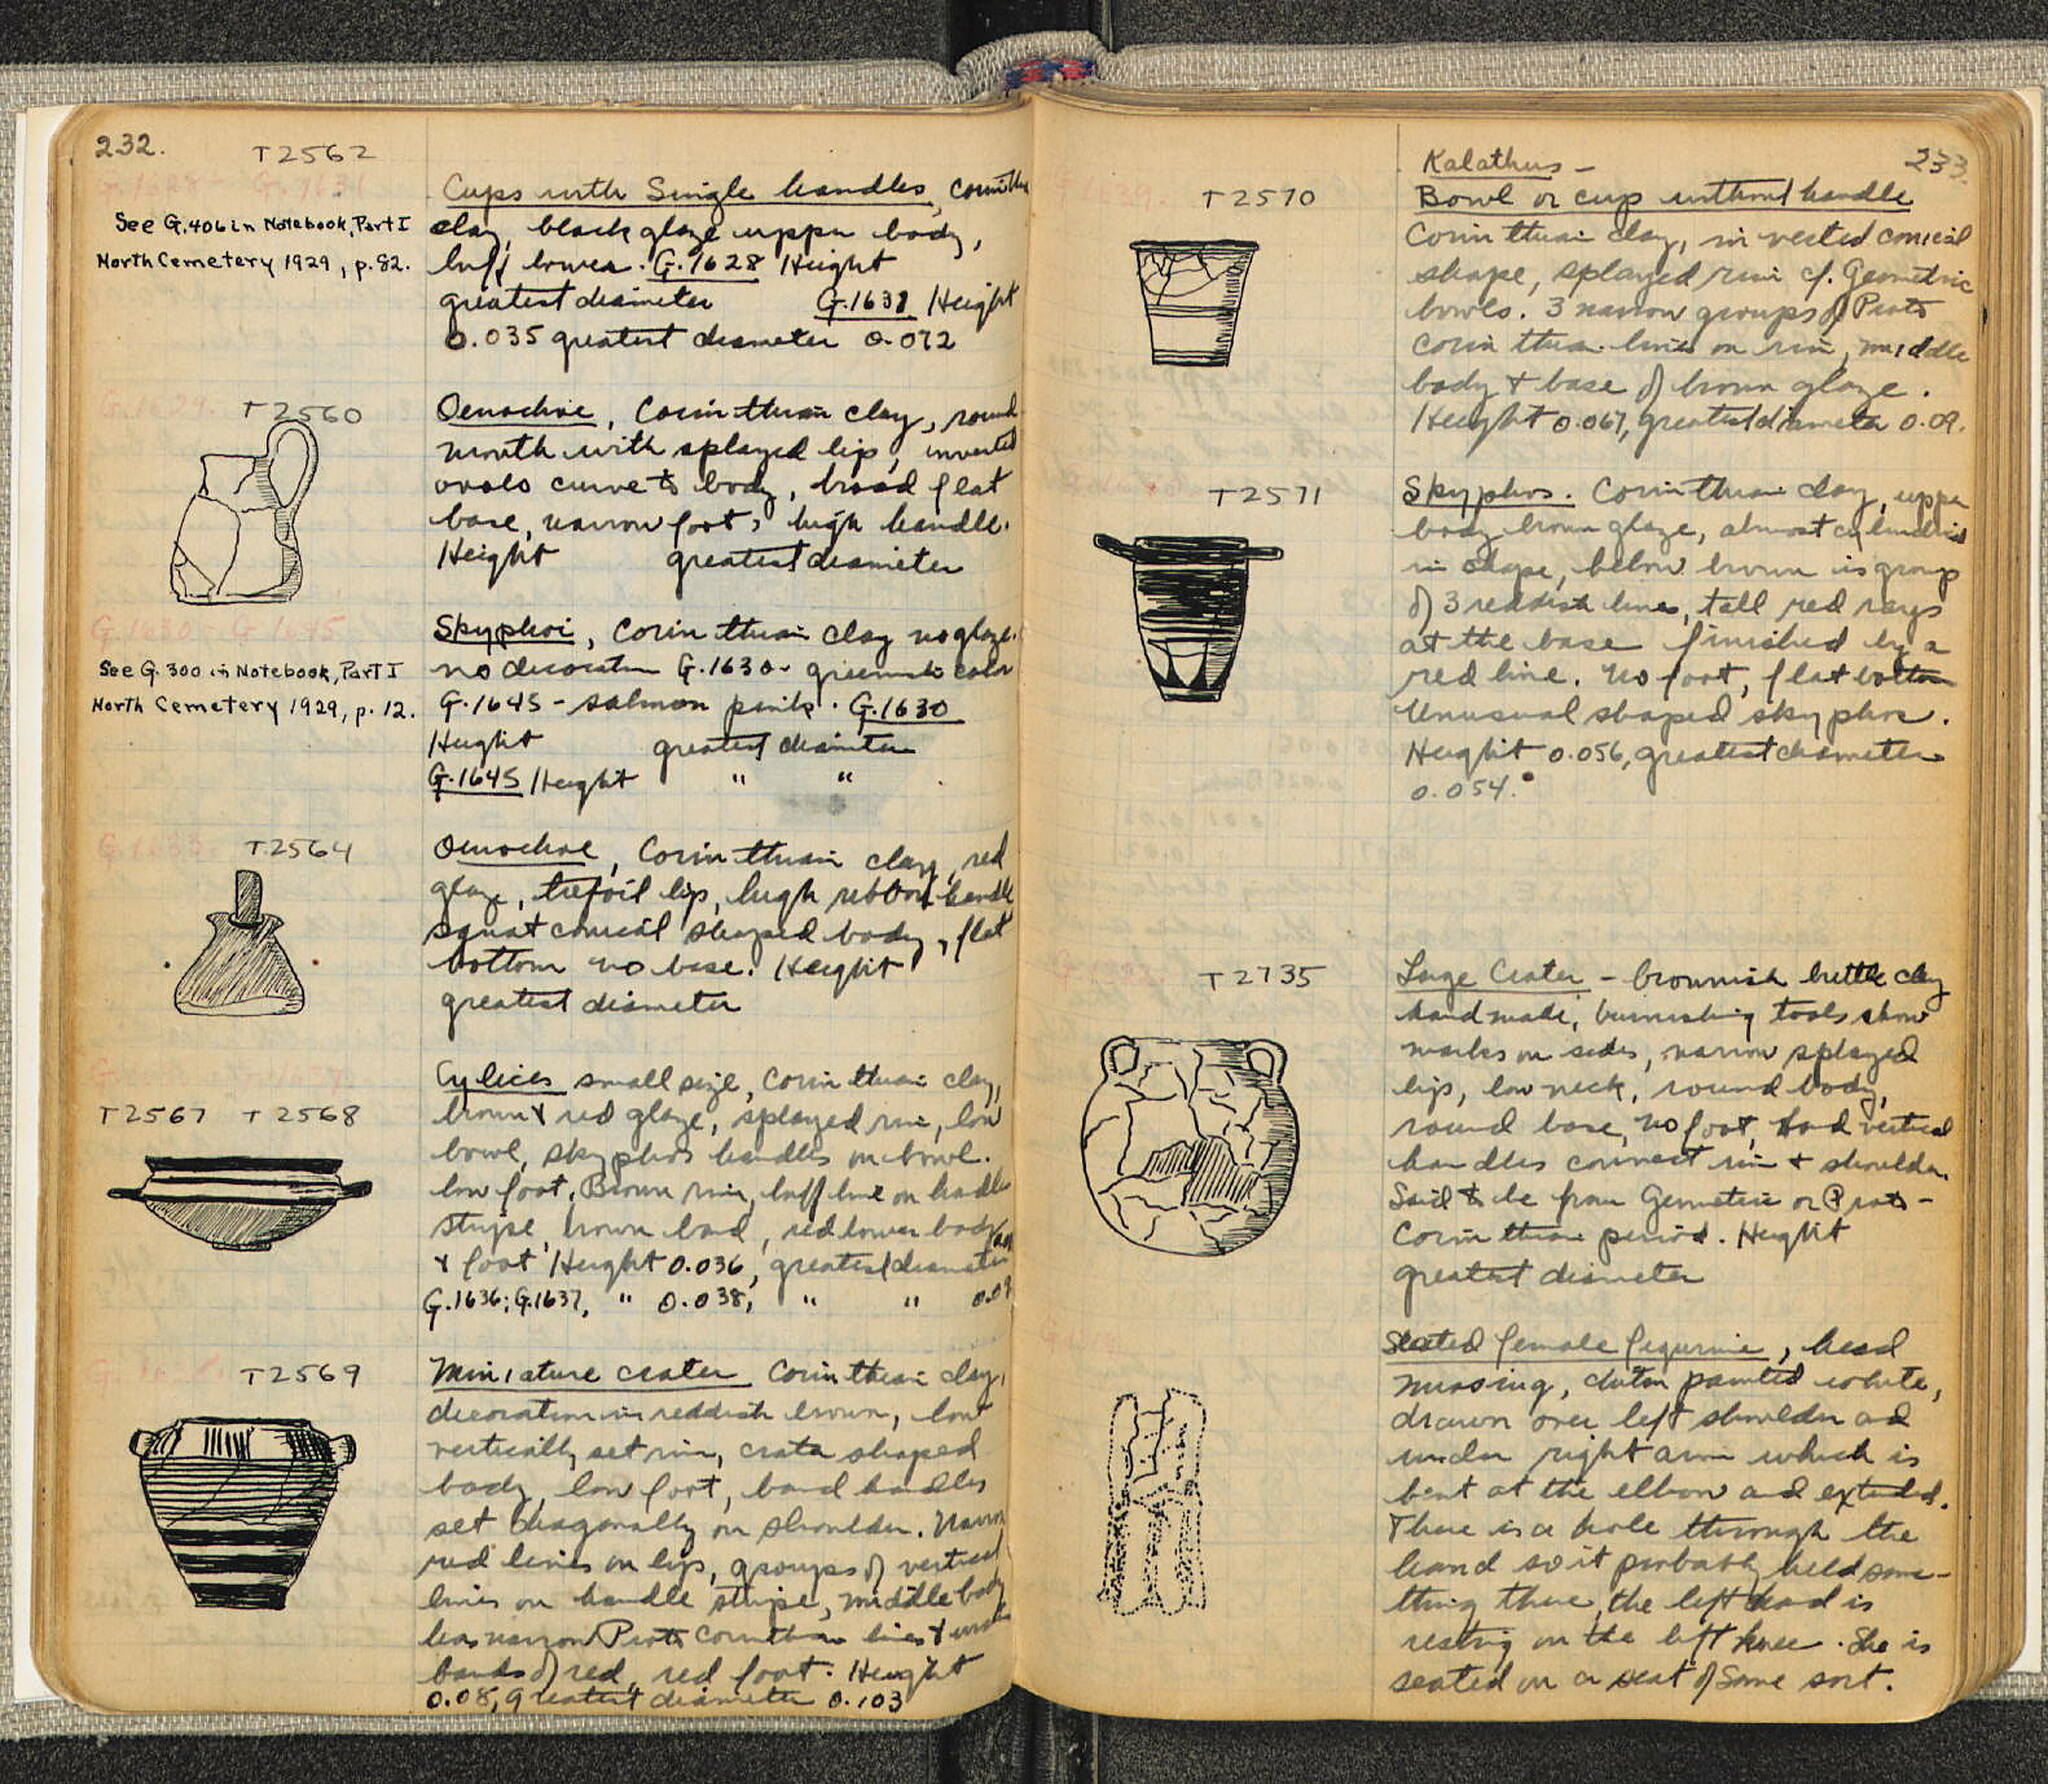 232.
T2562
G.1628 - G.1631
See G.406 in Notebook, Part I
North Cemetery 1929, p. 82.
Cups with Single handles, Corinthian
clay, black glaze upper body,
buff lower. G.1628 Height
greatest diameter G.1631 Height
0.035 greatest diameter 0.072
G.1629. T2560
Oenochoe, Corinthian clay, round
mouth with splayed lip, inverted
ovolo curve to body, broad flat
base, narrow foot, high handle.
Height greatest diameter
G.1630 - G.1645
See G.300 in Notebook, Part I
North Cemetery 1929, p. 12.
Skyphoi, Corinthian clay no glaze.
no decoration G.1630 - greenish color
G.1645 - salmon pink. G.1630
Height greatest diameter
G.1645 Height " "
T2564
Oenochoe, Corinthian clay, red
glaze, trefoil lip, high ribbon handle
squat conical shaped body, flat
bottom no base. Height
greatest diameter
T2567 T2568
Cylices small size, Corinthian clay,
brown & red glaze, splayed rim, low
bowl, skyphos handles on bowl.
low foot. Brown rim, buff line on handle
stripe, brown band, red lower body
& foot Height 0.036, greatest diameter
G.1636; G.1637, " 0.038, " "
T2569
Miniature crater Corinthian clay,
decoration in reddish brown, low
vertically set rim, crater shaped
body, low foot, band handles
set diagonally on shoulder. Narrow
red lines on lip, groups of vertical
lines on handle stripe, middle body
has narrow Proto Corinthian lines &
bands of red, red foot. Height
0.08, greatest diameter 0.103
233.
T2570
Kalathus -
Bowl or cup without handle
Corinthian clay, inverted conical
shape, splayed rim cf. Geometric
bowls. 3 narrow groups of Proto
Corinthian lines on rim, middle
body & base of brown glaze.
Height 0.067, greatest diameter 0.09.
T2571
Skyphos. Corinthian clay, upper
body brown glaze, almost cylindrical
in shape, below brown is group
of 3 reddish lines, tall red rays
at the base finished by a
red line. No foot, flat bottom
Unusual shaped skyphos.
Height 0.056, greatest diameter
0.054.
T2735
Large Crater - brownish brittle clay
handmade, burnishing tools show
marks on sides, narrow splayed
lip, low neck, round body,
round base, no foot, band vertical
handles connect rim & shoulder.
Said to be from Geometric or Proto-
Corinthian period. Height
greatest diameter
Seated female figurine, head
missing, chiton painted white,
drawn over left shoulder and
under right arm which is
bent at the elbow and extended.
There is a hole through the
hand so it probably held some-
thing there, the left hand is
resting on the left knee. She is
seated on a seat of some sort.